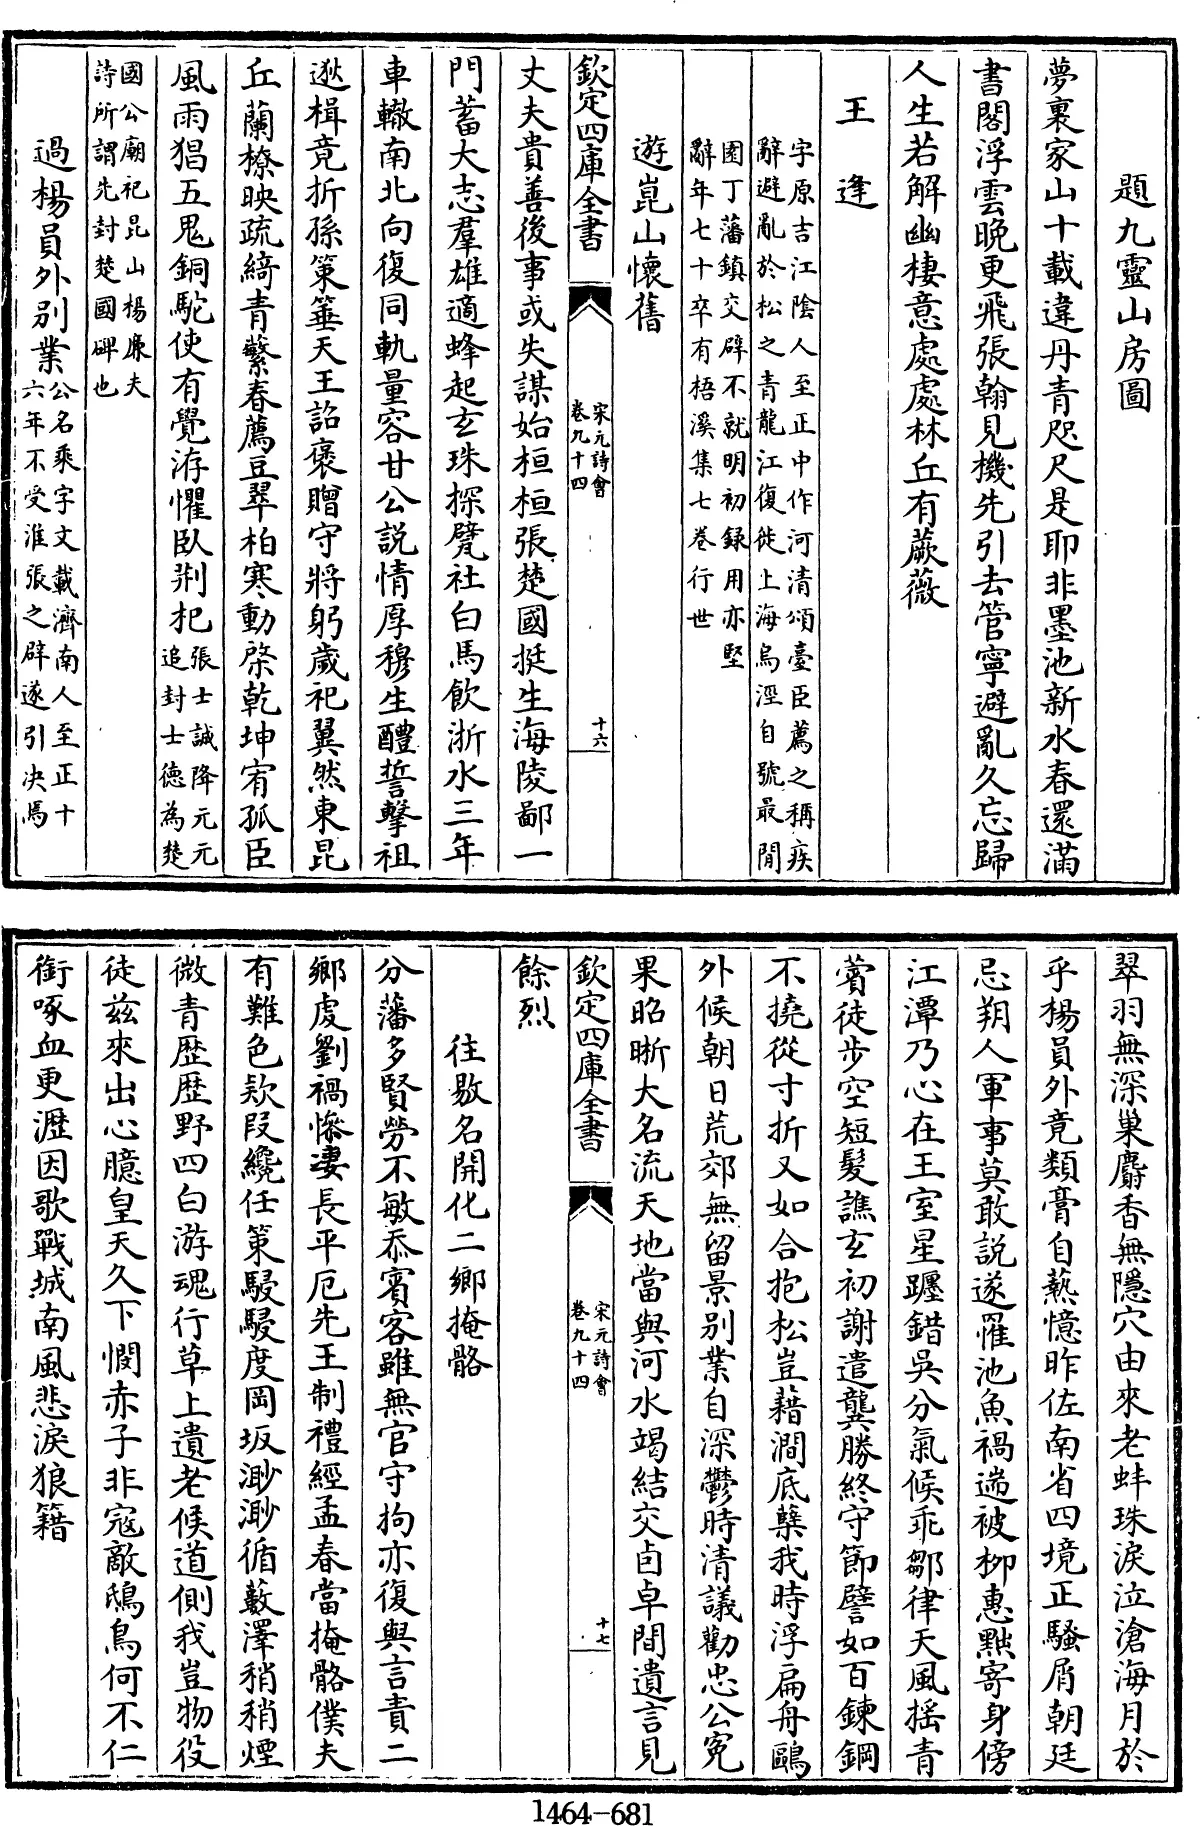 題九靈山房圖
夢裏家山十載違丹青咫尺是耶非墨池新水春還滿
書閣浮雲晚更飛張翰見機先引去管寧避亂久忘歸
人生若解幽棲意處處林丘有蕨薇
王逢
字原吉江陰人至正中作河清頌臺臣薦之稱疾
辭避亂於松之青龍江復徙上海烏涇自號最閒
園丁藩鎮交辟不就明初録用亦堅
辭年七十卒有梧溪集七卷行世
遊崑山懷舊
欽定四庫全書
宋元詩會
卷九十四
十六
丈夫貴善後事或失謀始桓桓張楚國挺生海陵鄙一
門蓄大志羣雄適蜂起玄珠探甓社白馬飲浙水三年
車轍南北向復同軌量容甘公説情厚穆生醴誓擊祖
逖楫竟折孫策箠天王詔褒贈守將躬歲祀翼然東昆
丘蘭橑映疏綺青蘩春薦豆翠柏寒動棨乾坤宥孤臣
風雨猖五鬼銅駝使有覺洊懼臥荆杞
張士誠降元元
追封士德為楚
國公廟祀昆山楊廉夫
詩所謂先封楚國碑也
過楊員外别業
公名乘字文載濟南人至正十
六年不受淮張之辟遂引决焉
翠羽無深巢麝香無隱穴由來老蚌珠淚泣滄海月於
乎楊員外竟類膏自熱憶昨佐南省四境正騷屑朝廷
忌朔人軍事莫敢説遂罹池魚禍遄被柳惠黜寄身傍
江潭乃心在王室星躔錯吳分氣候乖鄒律天風摇青
蕢徒步空短髮譙玄初謝遣龔勝終守節譬如百鍊鋼
不撓從寸折又如合抱松豈藉澗底蘖我時浮扁舟鷗
外候朝日荒郊無留景别業自深鬱時清議勸忠公寃
果昭晰大名流天地當與河水竭結交卣卓間遺言見
欽定四庫全書
宋元詩會
卷九十四
十七
餘烈
往敭名開化二鄉掩骼
分藩多賢勞不敏忝賓客雖無官守拘亦復與言責二
鄉虔劉禍慘凄長平厄先王制禮經孟春當掩骼僕夫
有難色欵段纔任策駸駸度岡坂渺渺循藪澤稍稍煙
微青歴歴野四白游魂行草上遺老候道側我豈物役
徒兹來出心臆皇天久下憫赤子非寇敵鴟鳥何不仁
銜啄血更瀝因歌戰城南風悲淚狼籍
1464-681